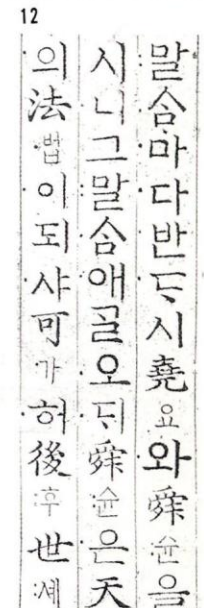 12
말ᄉᆞᆷ마다반ᄃᆞ시堯요와舜슌을
시니그말ᄉᆞᆷ애ᄀᆞᆯ오ᄃᆡ舜슌은天
의法법이되샤可가히後후世셰